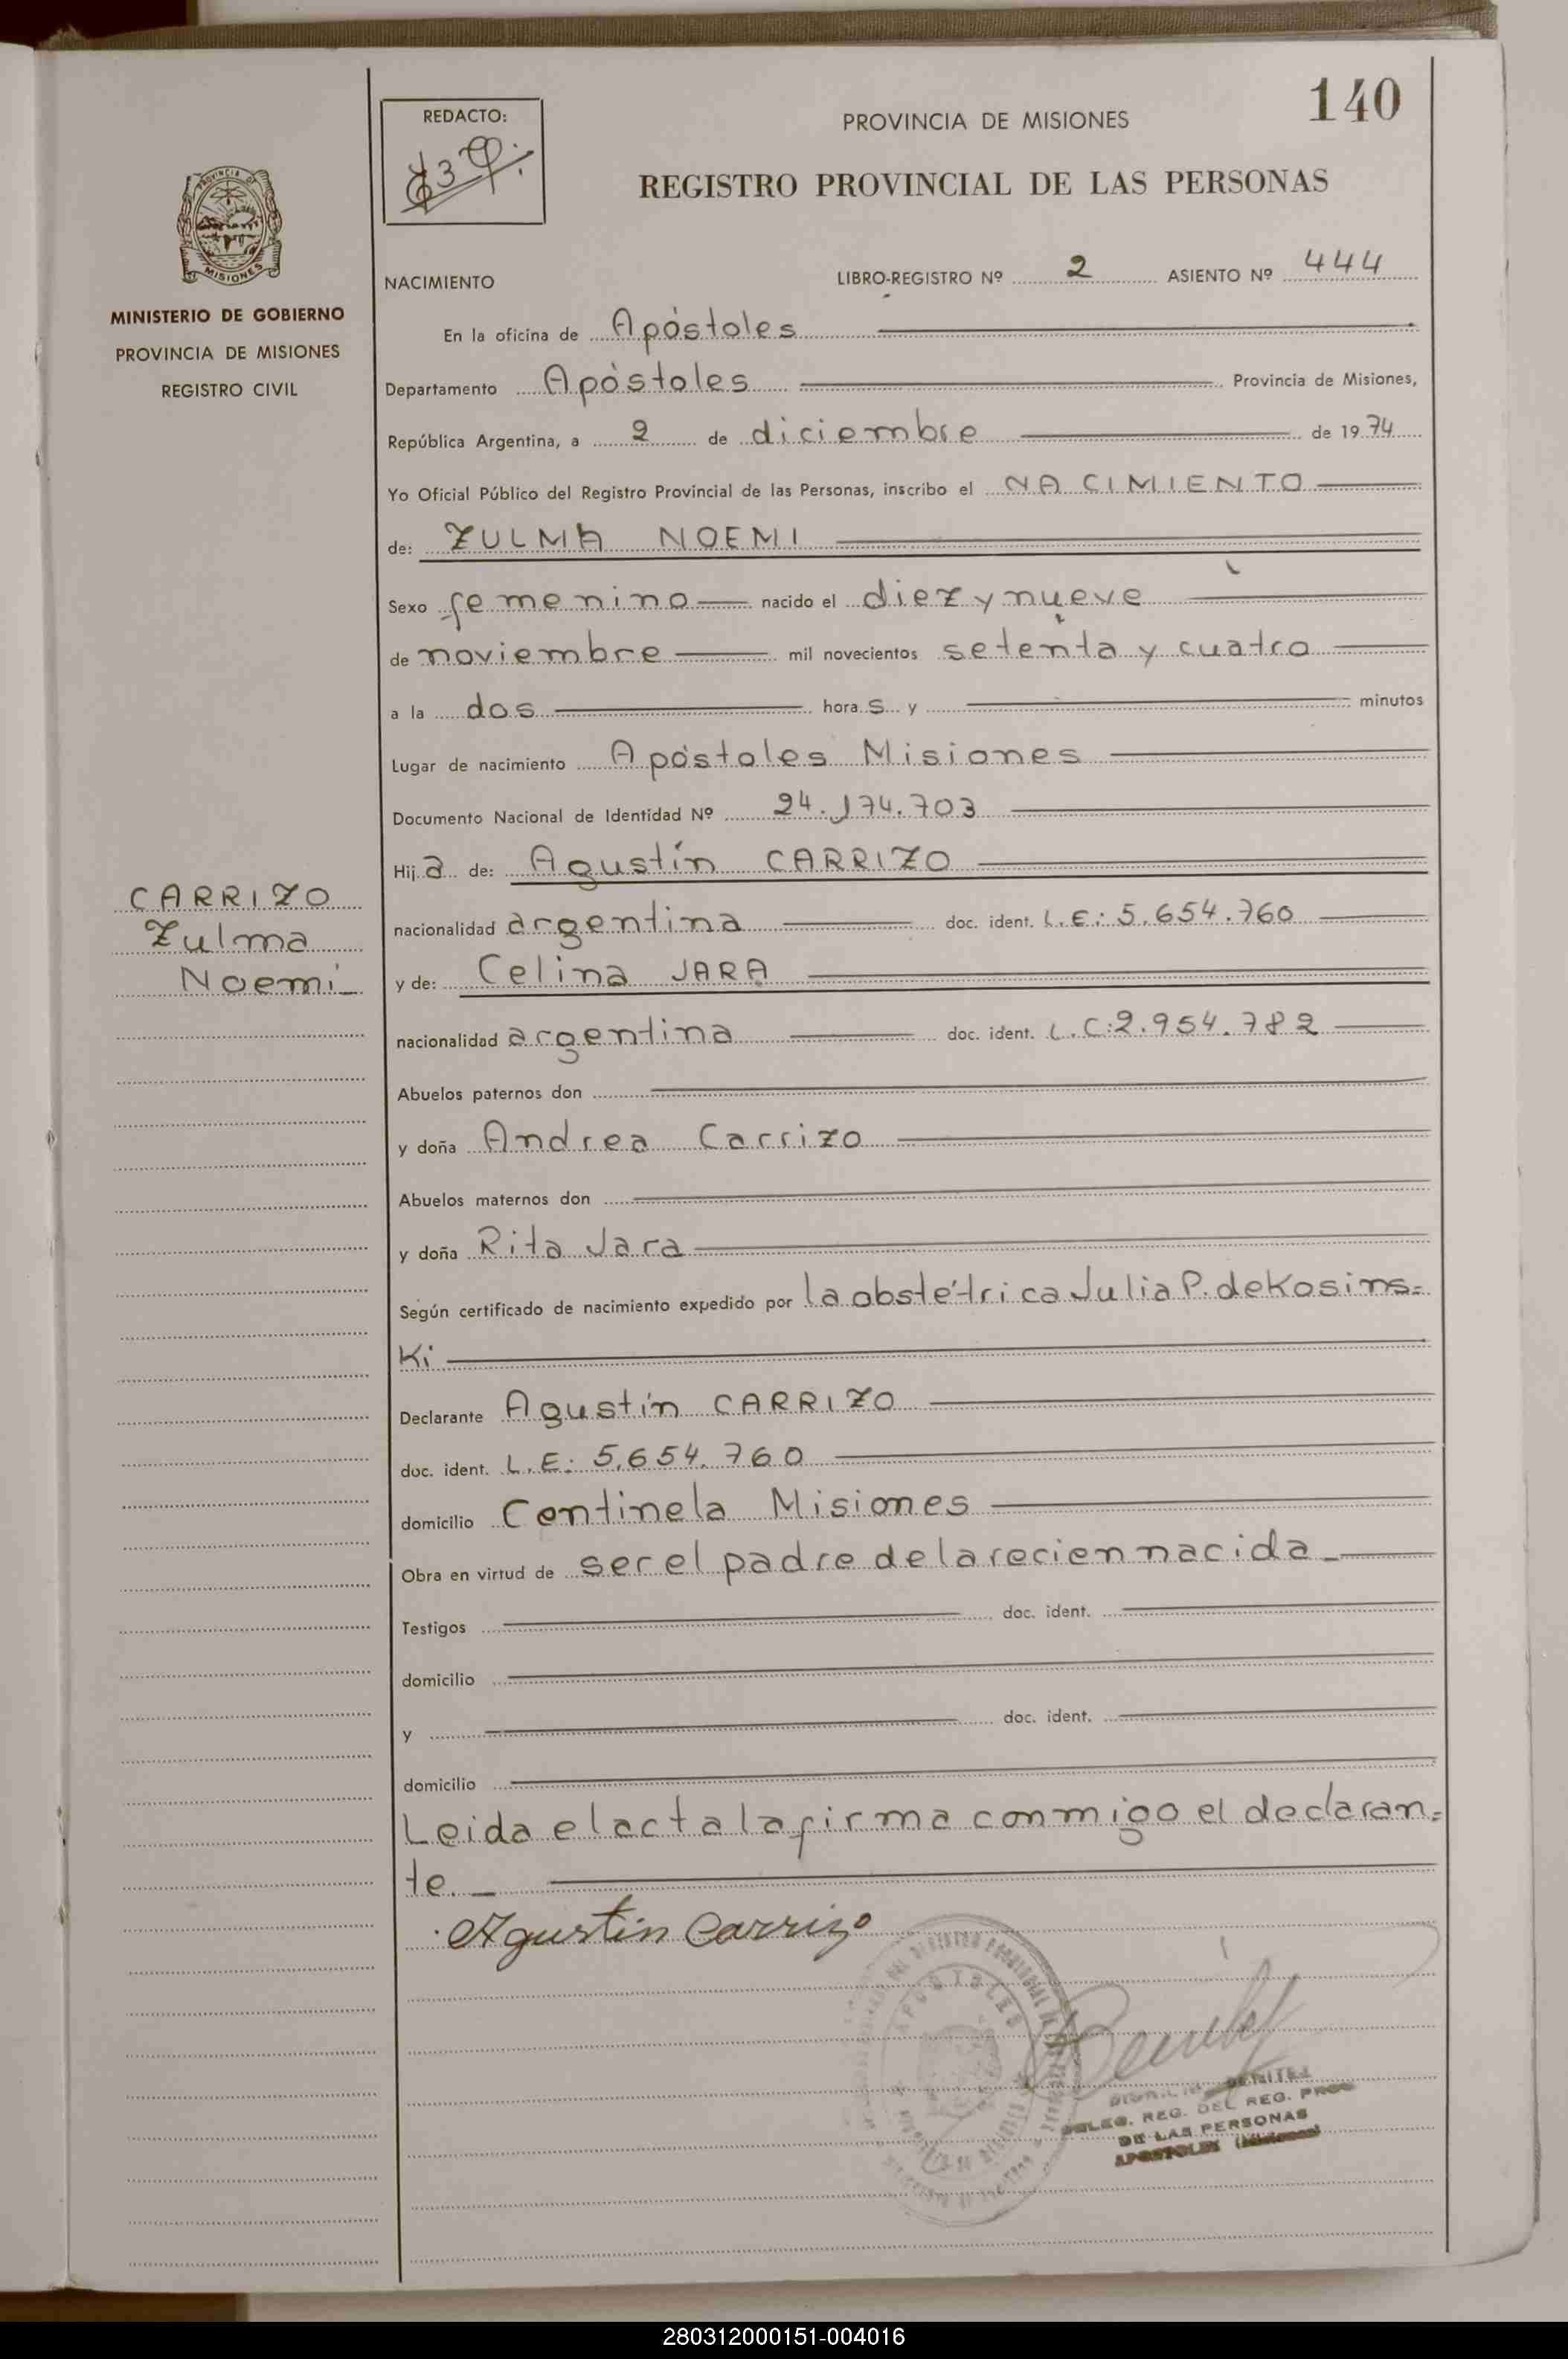 140
REDACTO:
PROVINCIA DE MISIONES
REGISTRO PROVINCIAL DE LAS PERSONAS
PROVINCIA DE
MISIONES
MINISTERIO DE GOBIERNO
PROVINCIA DE MISIONES
REGISTRO CIVIL
NACIMIENTO LIBRO-REGISTRO Nº 2 ASIENTO Nº 444
En la oficina de Apóstoles
Departamento Apóstoles Provincia de Misiones,
República Argentina, a 2 de diciembre de 1974
Yo Oficial Público del Registro Provincial de las Personas, inscribo el NACIMIENTO
de: ZULMA NOEMI
Sexo femenino nacido el diez y nueve
de noviembre mil novecientos setenta y cuatro
a la dos horas y minutos
Lugar de nacimiento Apóstoles Misiones
Documento Nacional de Identidad Nº 24.174.703
Hija de: Agustín CARRIZO
CARRIZO
Zulma
Noemi
nacionalidad argentina doc. ident. L.E.: 5.654.760
y de: Celina JARA
nacionalidad argentina doc. ident. L.C: 2.954.782
Abuelos paternos don
y doña Andrea Carrizo
Abuelos maternos don
y doña Rita Jara
Según certificado de nacimiento expedido por la obstétrica Julia P. de Kosins=
Ki
Declarante Agustín CARRIZO
doc. ident. L.E: 5.654.760
domicilio Centinela Misiones
Obra en virtud de ser el padre de la recien nacida
Testigos doc. ident.
domicilio
y doc. ident.
domicilio
Leida el acta la firma conmigo el declaran=
te.
Agustin Carrizo
APOSTOLES
BENITEZ
DELEG. REG. DEL REG. PROV
DE LAS PERSONAS
APOSTOLES (Misiones)
280312000151-004016